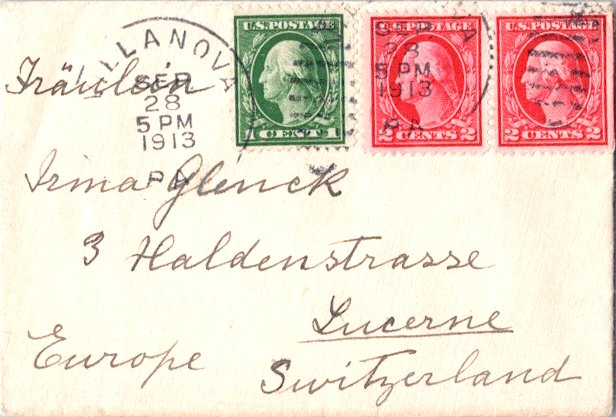 VILLANOVA
SEP
28
5 PM
1913
PA
U.S. POSTAGE
1 CENT 1
U.S. POSTAGE
2 CENTS 2
U.S. POSTAGE
2 CENTS 2
SEP
28
5 PM
1913
PA
Fräulein
Irma Glenck
3 Haldenstrasse
Lucerne
Europe Switzerland